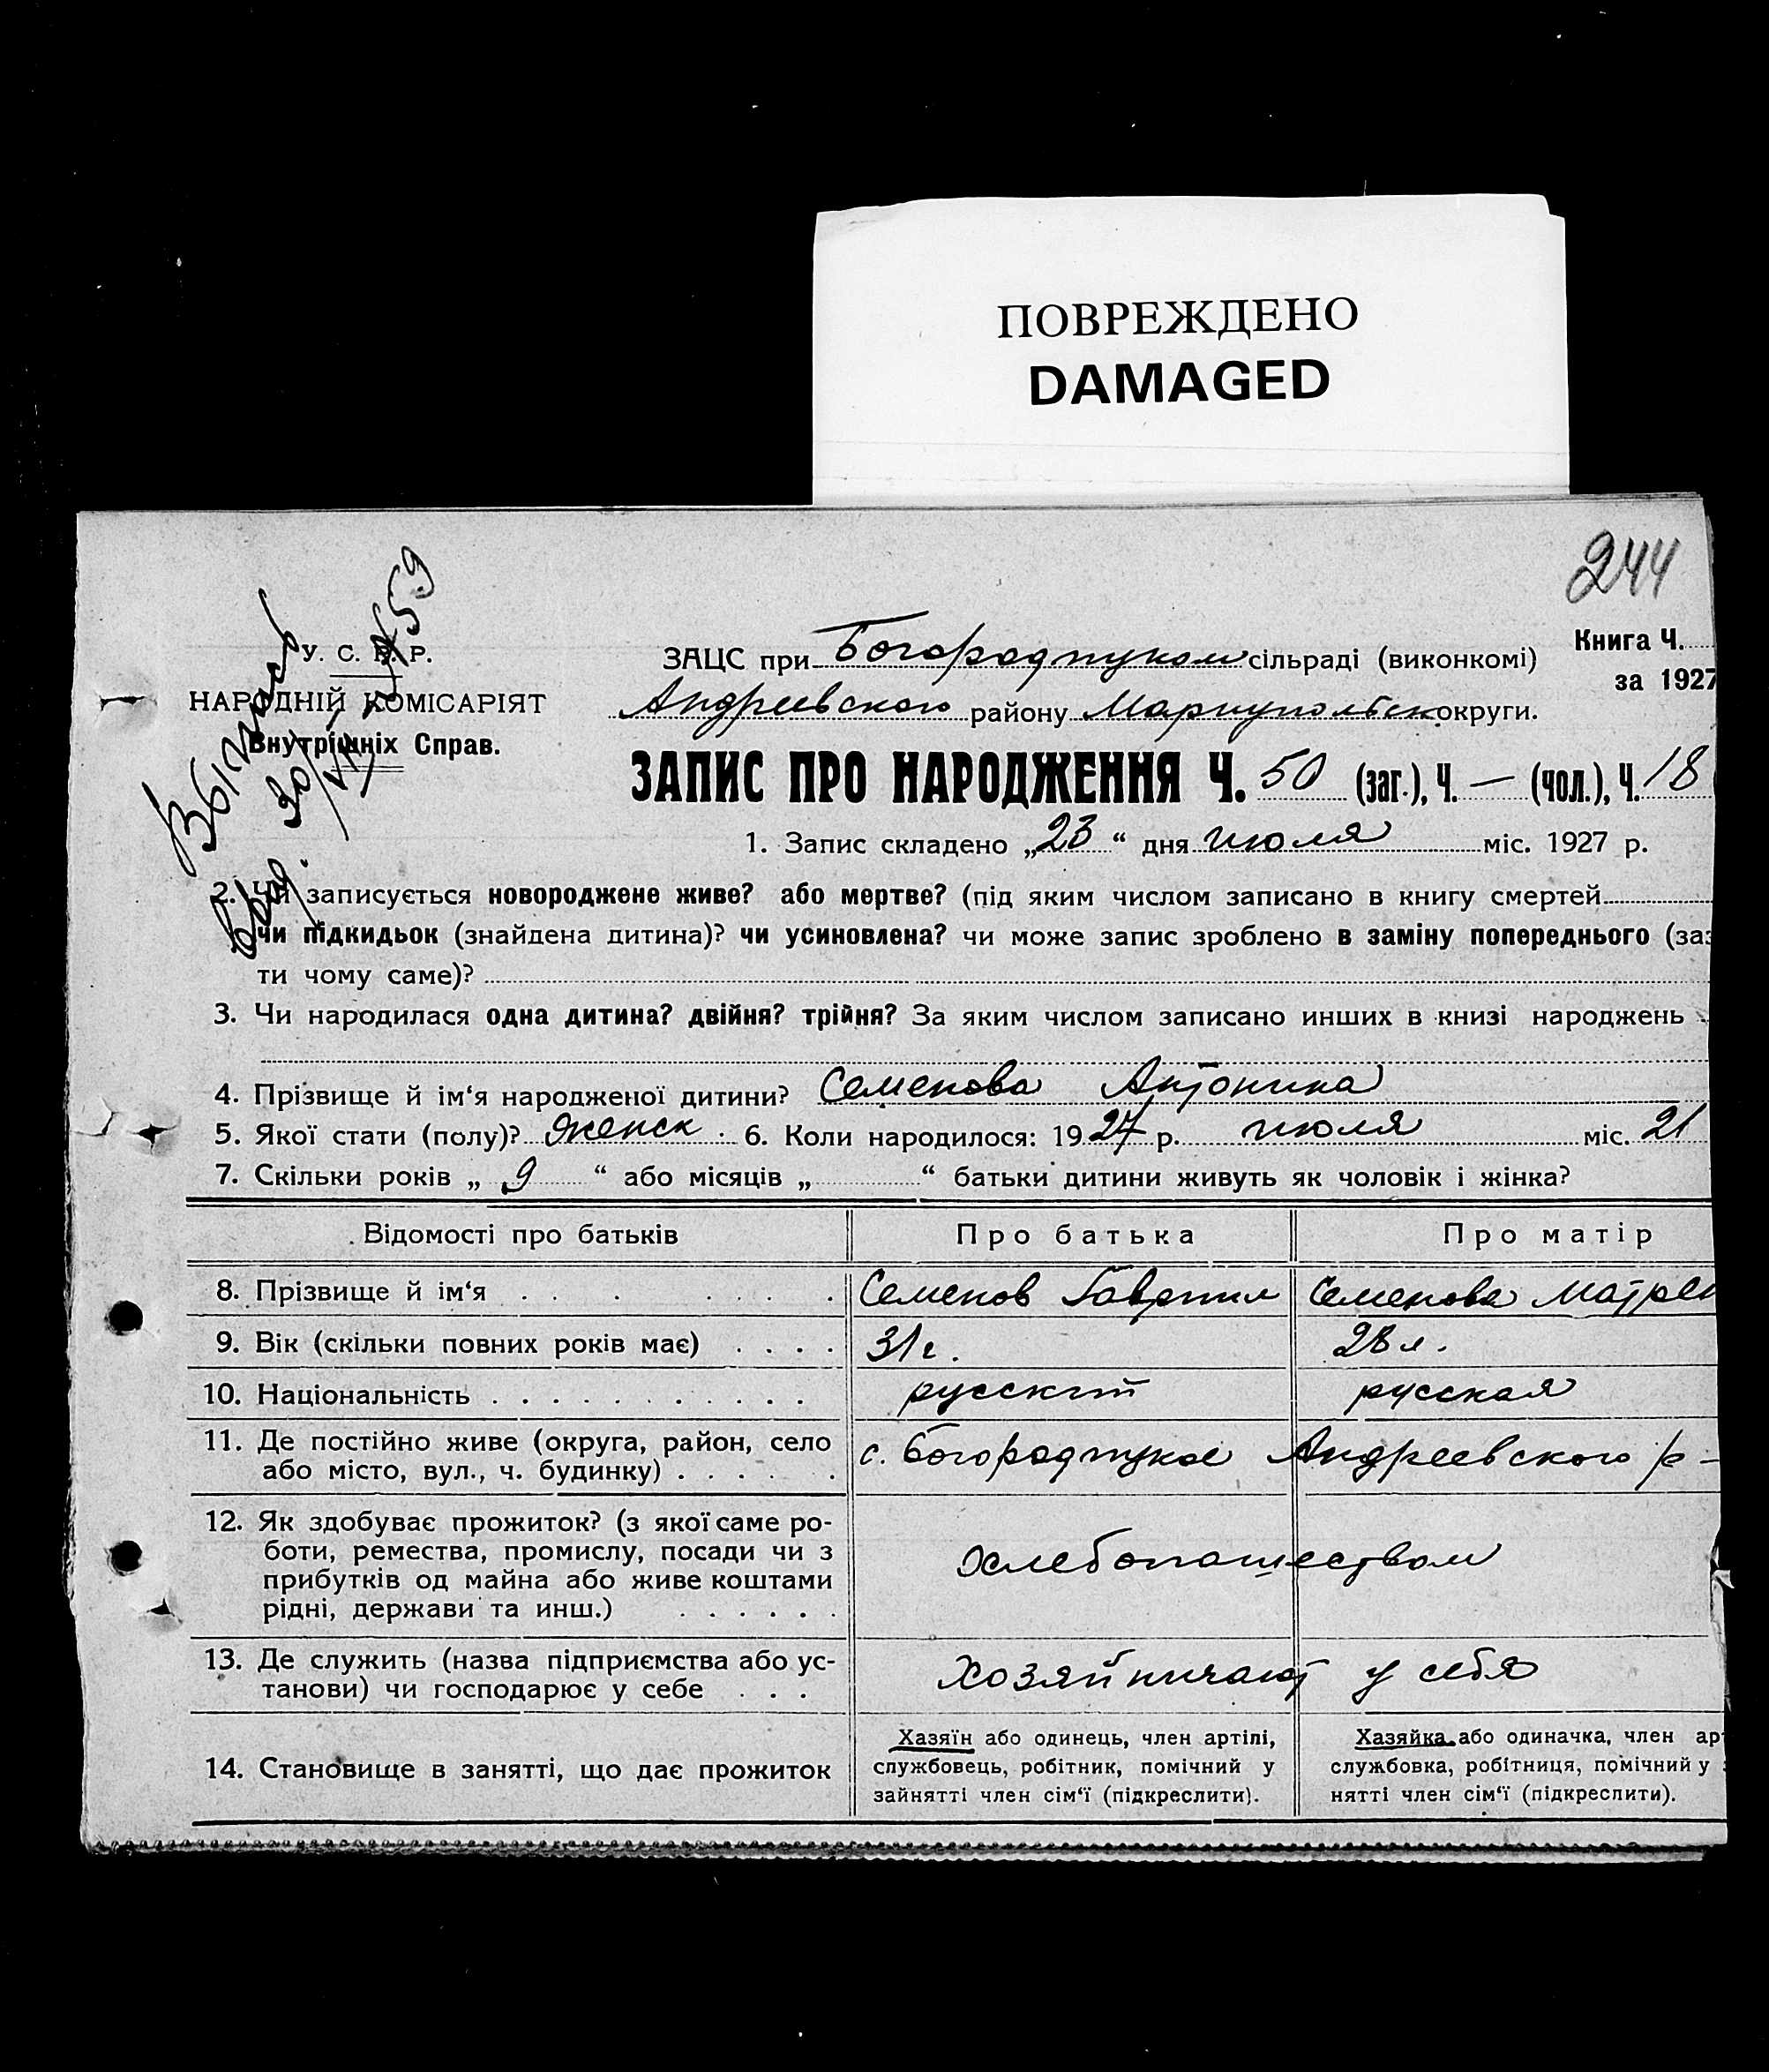 ПОВРЕЖДЕНО
DAMAGED
244
У. С. Р. Р.
НАРОДНІЙ КОМІСАРІЯТ
Внутрішніх Справ.
Книга Ч.
за 1927
ЗАЦС при Богородицком сільраді (виконкомі)
Андреевского району Мариупольск округи.
ЗАПИС ПРО НАРОДЖЕННЯ Ч. 50 (заг.), Ч. — (чол.), Ч. 18
1. Запис складено „23“ дня июля міс. 1927 р.
2. Чи записується новороджене живе? або мертве? (під яким числом записано в книгу смертей
чи підкидьок (знайдена дитина)? чи усиновлена? чи може запис зроблено в заміну попереднього (заз
ти чому саме)?
3. Чи народилася одна дитина? двійня? трійня? За яким числом записано инших в книзі народжень
4. Прізвище й ім‘я народженої дитини? Семенова Антонина
5. Якої стати (полу)? женск. 6. Коли народилося: 1927 р. июля міс. 21
7. Скільки років „ 9 “ або місяців „ “ батьки дитини живуть як чоловік і жінка?
Відомості про батьків Про батька Про матір
8. Прізвище й ім‘я Семенов Гавриил Семенова Матрен
9. Вік (скільки повних років має) 31 г. 28 л.
10. Національність русский русская
11. Де постійно живе (округа, район, село
або місто, вул., ч. будинку) с. Богородицкое Андреевского р-
12. Як здобуває прожиток? (з якої саме ро-
боти, ремества, промислу, посади чи з
прибутків од майна або живе коштами
рідні, держави та инш.)
хлебопашеством
13. Де служить (назва підприємства або ус-
танови) чи господарює у себе
Хозяйничают у себя
14. Становище в занятті, що дає прожиток
Хазяїн або одинець, член артілі,
службовець, робітник, помічний у
зайнятті член сім‘ї (підкреслити).
Хазяйка або одиначка, член арт
службовка, робітниця, помічний у з
нятті член сім‘ї (підкреслити).